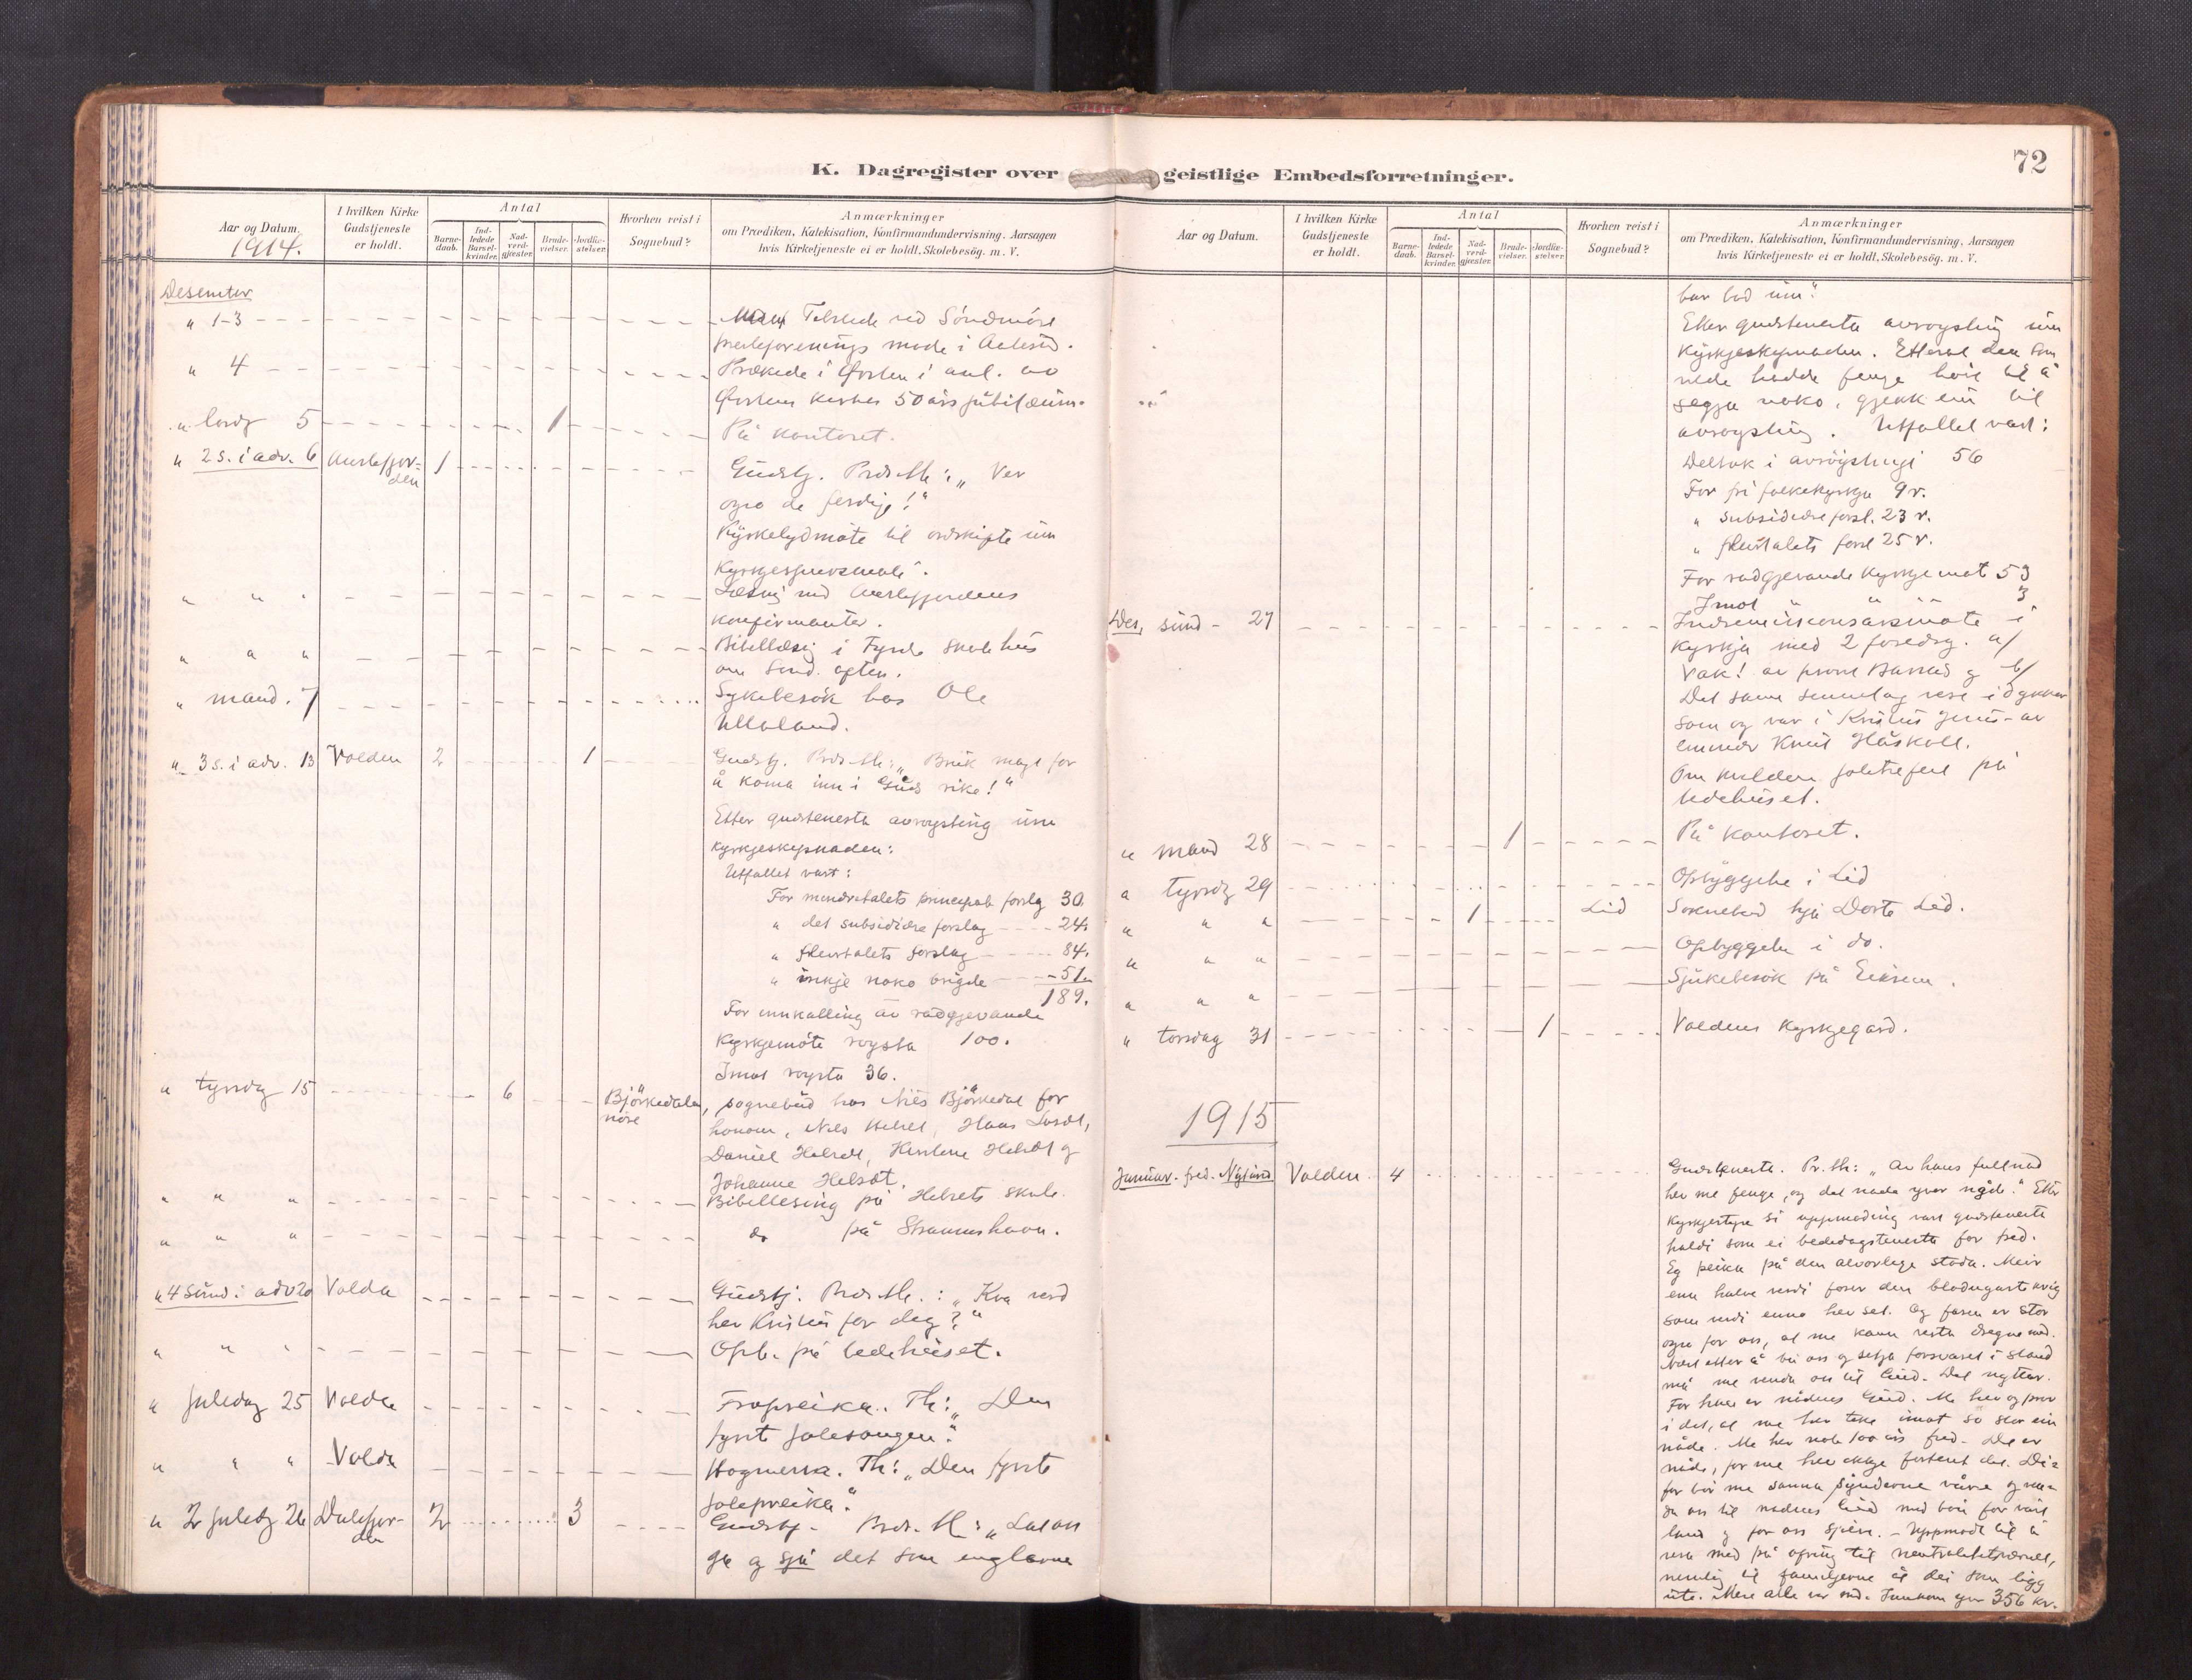 K. Dagregister over geistlige Embedsforretninger.
72
Aar og Datum.
1914.
I hvilken Kirke Gudstjeneste er holdt.
Antal
Barne-daab.
Ind-ledede Barsel-kvinder.
Nad-verd-gjester.
Brude-vielser.
Jordfæ-stelser.
Hvorhen reist i Sognebud?
Anmærkninger
om Prædiken, Katekisation, Konfirmandundervisning. Aarsagen
hvis Kirketjeneste ei er holdt, Skolebesög. m. V.
Desember
" 1-3 Söndmöre
presteforenings møde i Aalesund.
" 4 Prækede i Ørsten i anl. av
Ørsten kirkes 50 års jubilæum.
" lørdg 5 1 På kontoret.
" 2 s. i adv. 6 Austefjorden 1 Gudstj. Præk. th: „Ver
ogso de ferdige!"
Kyrkelydmøte til ordskifte um
Kyrkjespursmåle.
" " " Lesing med Austefjordens
konfirmanter.
" " " Bibellesing i Fyrde skolehus
om Sund. aften.
" mand. 7 Sykebesök hos Ole
" 3 s. i adv. 13 Volden 2 1 Gudstj. Præk. th: „Bruk magt for
å koma inn i Guds rike!"
Etter gudstenesta avrøysting um
kyrkjeskipnaden:
Utfallet vart:
For mindretalets principale forslg 30.
" det subsidiære forslag 24.
" fleirtalets forslag 84.
" inkje noko brigde 51
189.
For innkalling av rådgjevande
Kyrkjemöte røysta 100.
Imot røysta 36.
" tyrsdg 15 6 Björkedals nöre, sognebud hos Nils Björkedal for
honom, Nils Helset, Hans
Daniel Helset, Helset og
Johanne Helset.
" " " Bibellesing på Helsets skule.
" " " do på Straumshavn.
" 4 sund i adv 20 Volda Gudstj. Præk. th.: „Kva verd
hev Kristus for deg?"
" " " Opb. på bedehuset.
" juledag 25 Volda Froprieka. Th: „Den
fyrste jolesongen."
" " " Volda Högmessa. Th: „Den fyrste
jolepreika."
" 2 juledg 26 Dalsfjorden 2 3 Gudstj. Præk. th: „Lat oss
gå og sjå det som englarne
Aar og Datum.
I hvilken Kirke Gudstjeneste er holdt.
Antal
Barne-daab.
Ind-ledede Barsel-kvinder.
Nad-verd-gjester.
Brude-vielser.
Jordfæ-stelser.
Hvorhen reist i Sognebud?
Anmærkninger
om Prædiken, Katekisation, Konfirmandundervisning, Aarsagen
hvis Kirketjeneste ei er holdt, Skolebesög. m. V.
bar bod um."
Etter gudstenesta avrøysting um
Kyrkjeskipnaden. Etterat den som
vilde hadde fenge høve til å
segja noko, gjekk ein til
avrøysting. Utfallet vart:
Deltok i avrøystingi 56
For fri folkekyrkja 9 r.
" subsidiære forsl. 23 r.
" fleirtalets forsl 25 r.
For rådgjevande kyrkjemøt 53
Imot " " " 3
Des, sund 27 Indremisjonsårsmøte i
kyrkja med 2 foredrg. a/
Vak! av b/
Det same sinnelag vere i dykker
som og var i Kristus Jesus - av
Knut Håskoll.
Om kvelden joletrefest på
bedehuset.
" mand 28 1 På kontoret.
" tyrsdg 29 Opbyggelse i Lid
" " " 1 Lid Soknebud hjå Dorte Lid.
" " " Opbyggelse i do.
" " " Sjukebesök på
" torsdag 31 1 Voldens Kyrkjegard.
1915
Januar. fred. Nyårsd Volden 4 Gudstenesta. Pr. th: „Av hans fullnad
hev me fenge, og det nåde yver nåde." Etter
kyrkjestyre si uppmoding vart gudstenesta
haldi som ei bededagstenesta for fred.
Eg peika på den alvorlege stoda. Meir
enn halve verdi fører den blodugaste krig
som verdi enno hev set. Og fåren er stor
ogso for oss, at me kann verta dregne med.
Næst etter å bu oss og setja forsvaret i stand
må me venda oss til Gud. Det nyttar.
For han er nådens Gud. Me hev og prov
i det, at me hev teke imot so stor ein
nåde. Me hev note 100 års fred. Det er
nåde, for me hev ikkje fortent det. Difor
bör me sanna synderne våre og venda
oss til nådens Gud med bön for vårt
land og for oss sjölve. - Uppmoda til å
vera med på ofring til neutralitetsvernet,
nemlig til familjerne åt dei som ligg
ute. Mest alle var med. Innkom yver 356 kr.